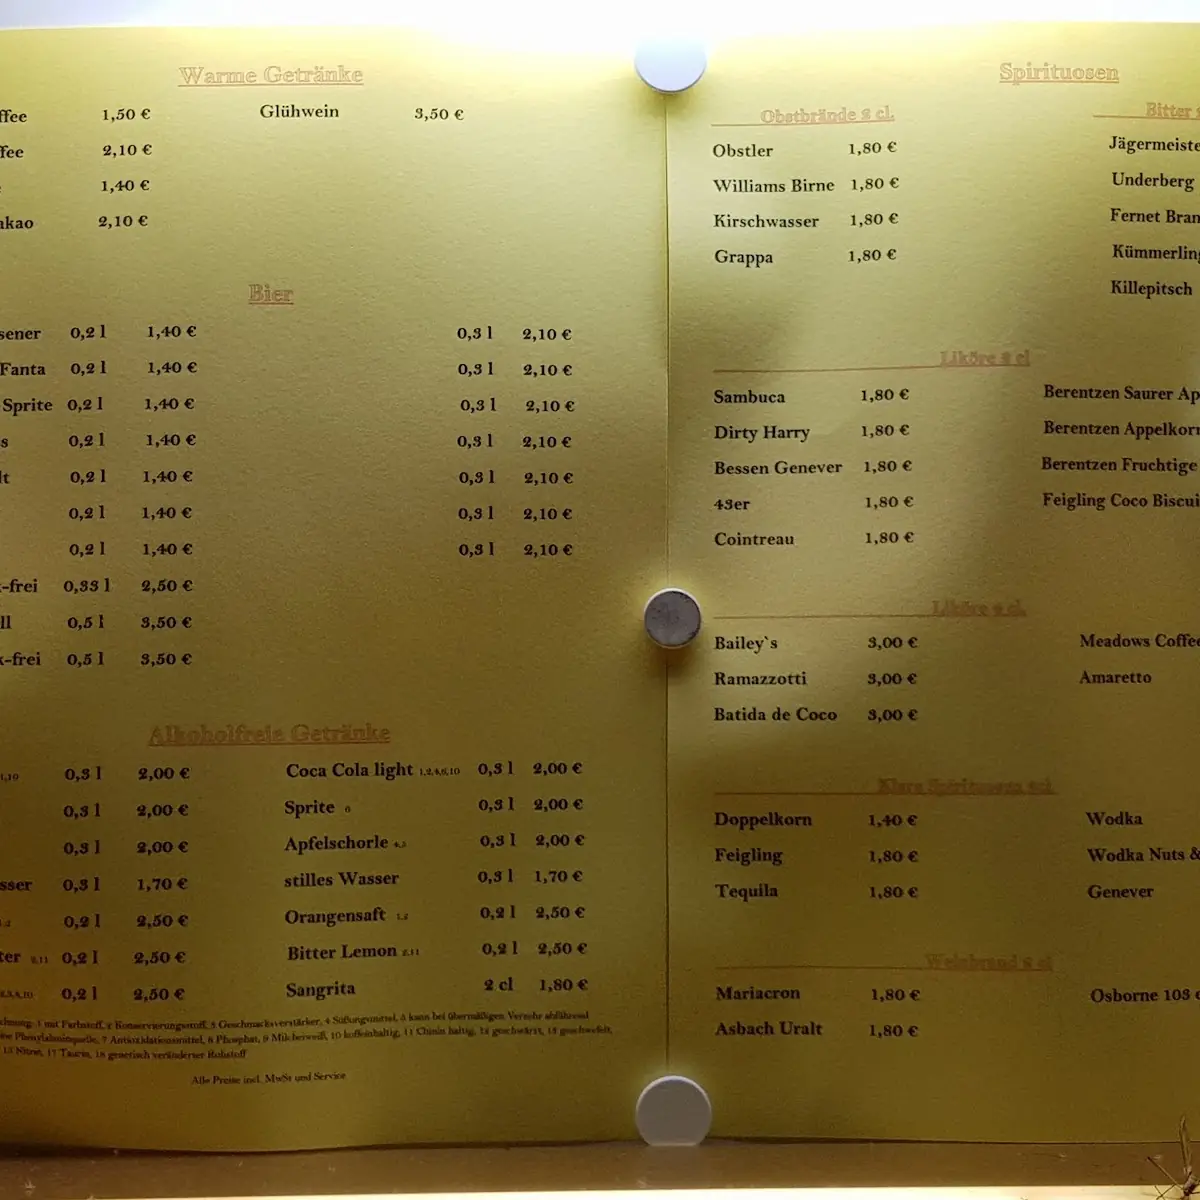 Warme Getränke
ffee 1,50 € Glühwein 3,50 €
ffee 2,10 €
1,40 €
akao 2,10 €
Bier
sener 0,2 l 1,40 € 0,3 l 2,10 €
Fanta 0,2 l 1,40 € 0,3 l 2,10 €
Sprite 0,2 l 1,40 € 0,3 l 2,10 €
s 0,2 l 1,40 € 0,3 l 2,10 €
lt 0,2 l 1,40 € 0,3 l 2,10 €
0,2 l 1,40 € 0,3 l 2,10 €
0,2 l 1,40 € 0,3 l 2,10 €
-frei 0,33 l 2,50 €
ll 0,5 l 3,50 €
k-frei 0,5 l 3,50 €
Alkoholfreie Getränke
1,10 0,3 l 2,00 € Coca Cola light 1,2,4,6,10 0,3 l 2,00 €
0,3 l 2,00 € Sprite 6 0,3 l 2,00 €
0,3 l 2,00 € Apfelschorle 0,3 l 2,00 €
sser 0,3 l 1,70 € stilles Wasser 0,3 l 1,70 €
0,2 l 2,50 € Orangensaft 1,2 0,2 l 2,50 €
ter 2,11 0,2 l 2,50 € Bitter Lemon 2,11 0,2 l 2,50 €
0,2 l 2,50 € Sangrita 2 cl 1,80 €
chnung: 1 mit Farbstoff, 2 Konservierungsstoff, 3 Geschmacksverstärker, 4 Süßungsmittel, 5 kann bei übermäßigen Verzehr abführend
ine Phenylalaninquelle, 7 Antioxidationsmittel, 8 Phosphat, 9 Milcheiweiß, 10 koffeinhaltig, 11 Chinin haltig, 12 geschwärzt, 13 geschwefelt,
Nitrat, 17 Taurin, 18 genetisch veränderter Rohstoff
Alle Preise incl. MwSt und Service
Spirituosen
Obstbrände 2 cl. Bitter
Obstler 1,80 € Jägermeiste
Williams Birne 1,80 € Underberg
Kirschwasser 1,80 € Fernet Bran
Grappa 1,80 € Kümmerling
Killepitsch
Liköre 2 cl
Sambuca 1,80 € Berentzen Saurer Ap
Dirty Harry 1,80 € Berentzen Appelkorn
Bessen Genever 1,80 € Berentzen Fruchtige
43er 1,80 € Feigling Coco Biscui
Cointreau 1,80 €
Liköre cl.
Bailey`s 3,00 € Meadows Coffee
Ramazzotti 3,00 € Amaretto
Batida de Coco 3,00 €
Klare Spirituosen 2cl
Doppelkorn 1,40 € Wodka
Feigling 1,80 € Wodka Nuts &
Tequila 1,80 € Genever
Weinbrand 2 cl
Mariacron 1,80 € Osborne 103
Asbach Uralt 1,80 €